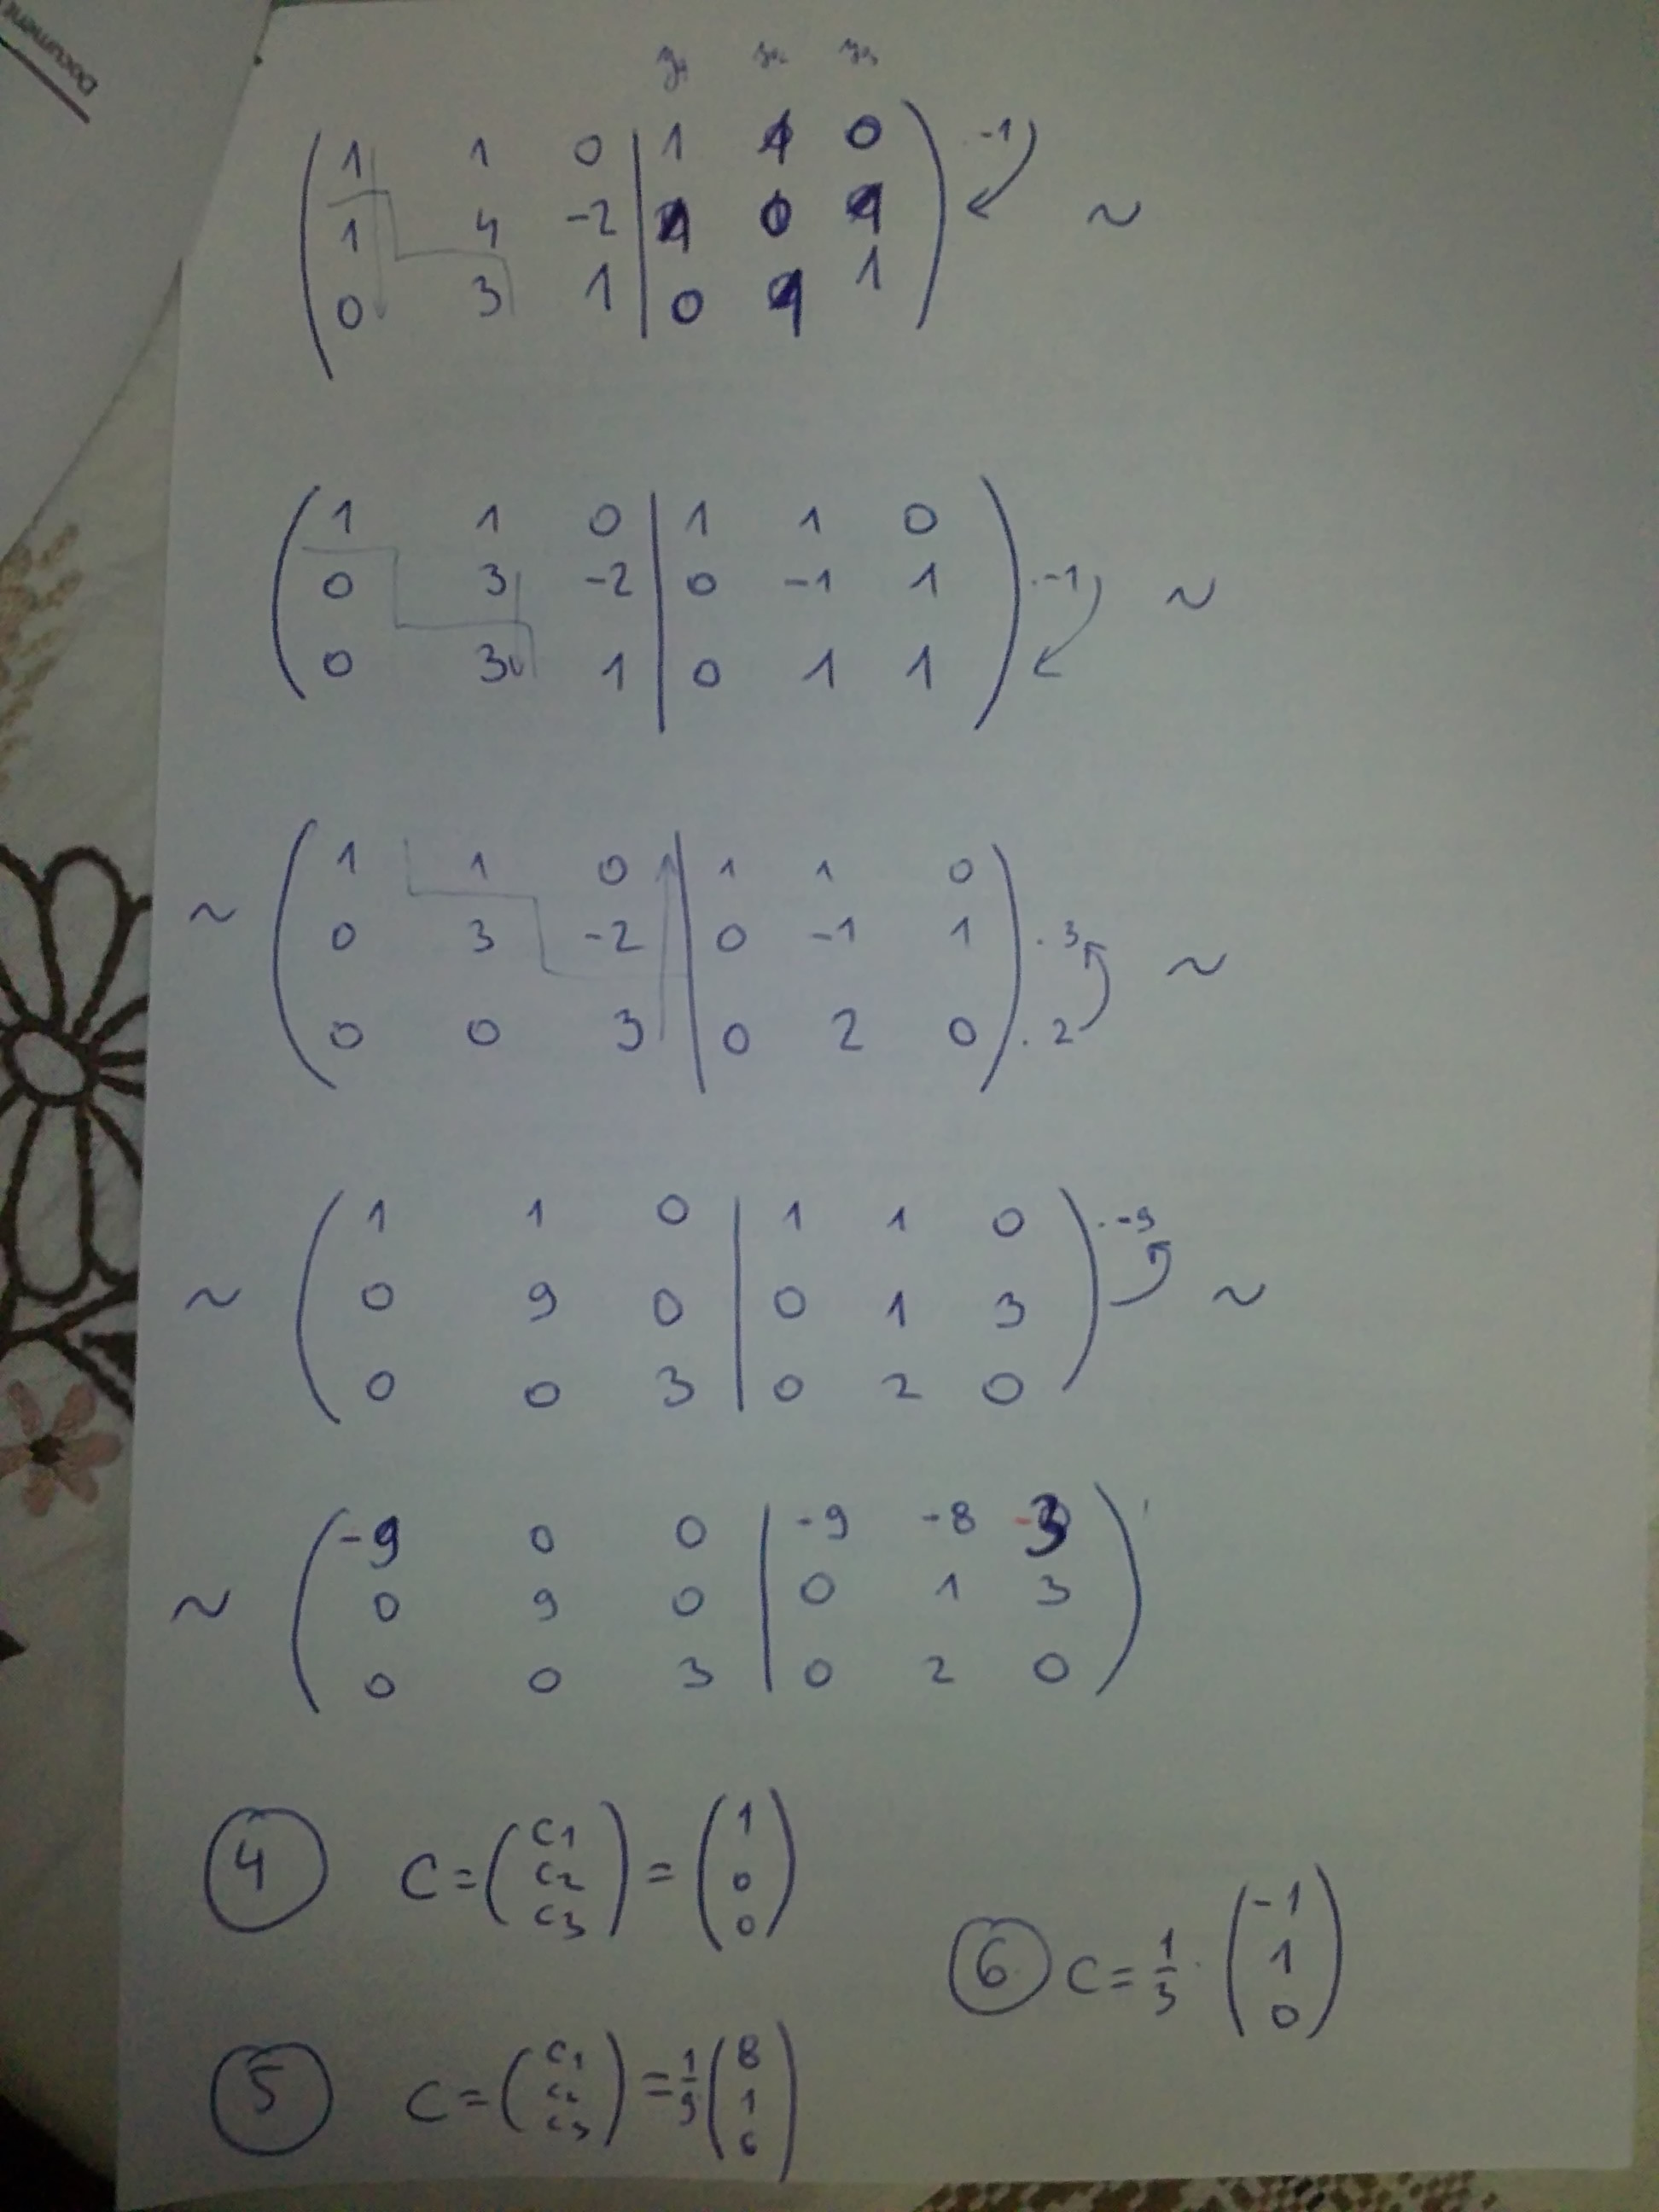 Document
y₁ y₂ y₃
( 1 1 0 | 1 1 0 ) · -1
( 1 4 -2 | 1 0 1 ) ~
( 0 3 1 | 0 1 1 )
( 1 1 0 | 1 1 0 )
( 0 3 -2 | 0 -1 1 ) · -1 ~
( 0 3 1 | 0 1 1 )
( 1 1 0 | 1 1 0 )
~ ( 0 3 -2 | 0 -1 1 ) · 3 ~
( 0 0 3 | 0 2 0 ) · 2
( 1 1 0 | 1 1 0 ) · -9
~ ( 0 9 0 | 0 1 3 ) ~
( 0 0 3 | 0 2 0 )
( -9 0 0 | -9 -8 -3 )
~ ( 0 9 0 | 0 1 3 )
( 0 0 3 | 0 2 0 )
④ C = ( c1 c2 c3 ) = ( 1 0 0 )
⑥ C = 1/3 · ( -1 1 0 )
⑤ C = ( c1 c2 c3 ) = 1/9 ( 8 1 6 )